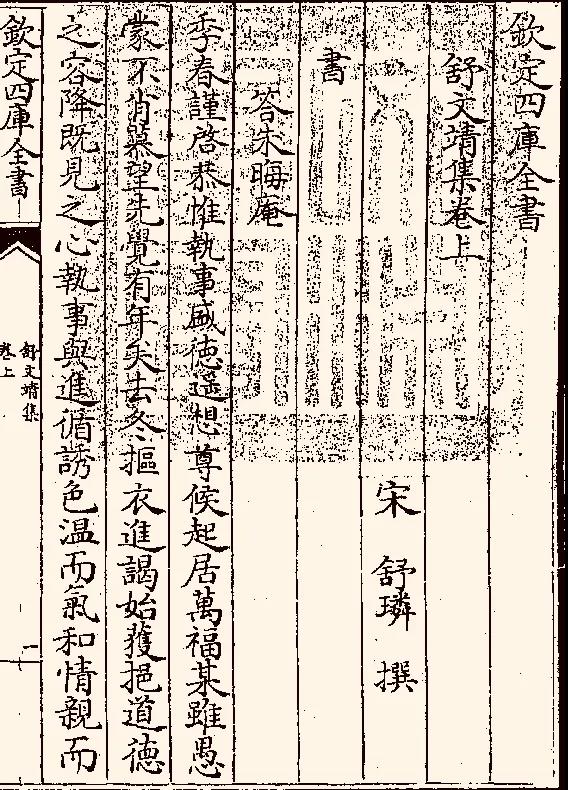 欽定四庫全書
舒文靖集卷上
宋 舒璘 撰
書
答朱晦庵
季春謹啓恭惟執事盛徳遥想尊候起居萬福某雖愚
蒙不肖慕望先覺有年矣去冬摳衣進謁始獲挹道徳
之容降既見之心執事與進循誘色温而氣和情親而
欽定四庫全書
舒文靖集
卷上
一